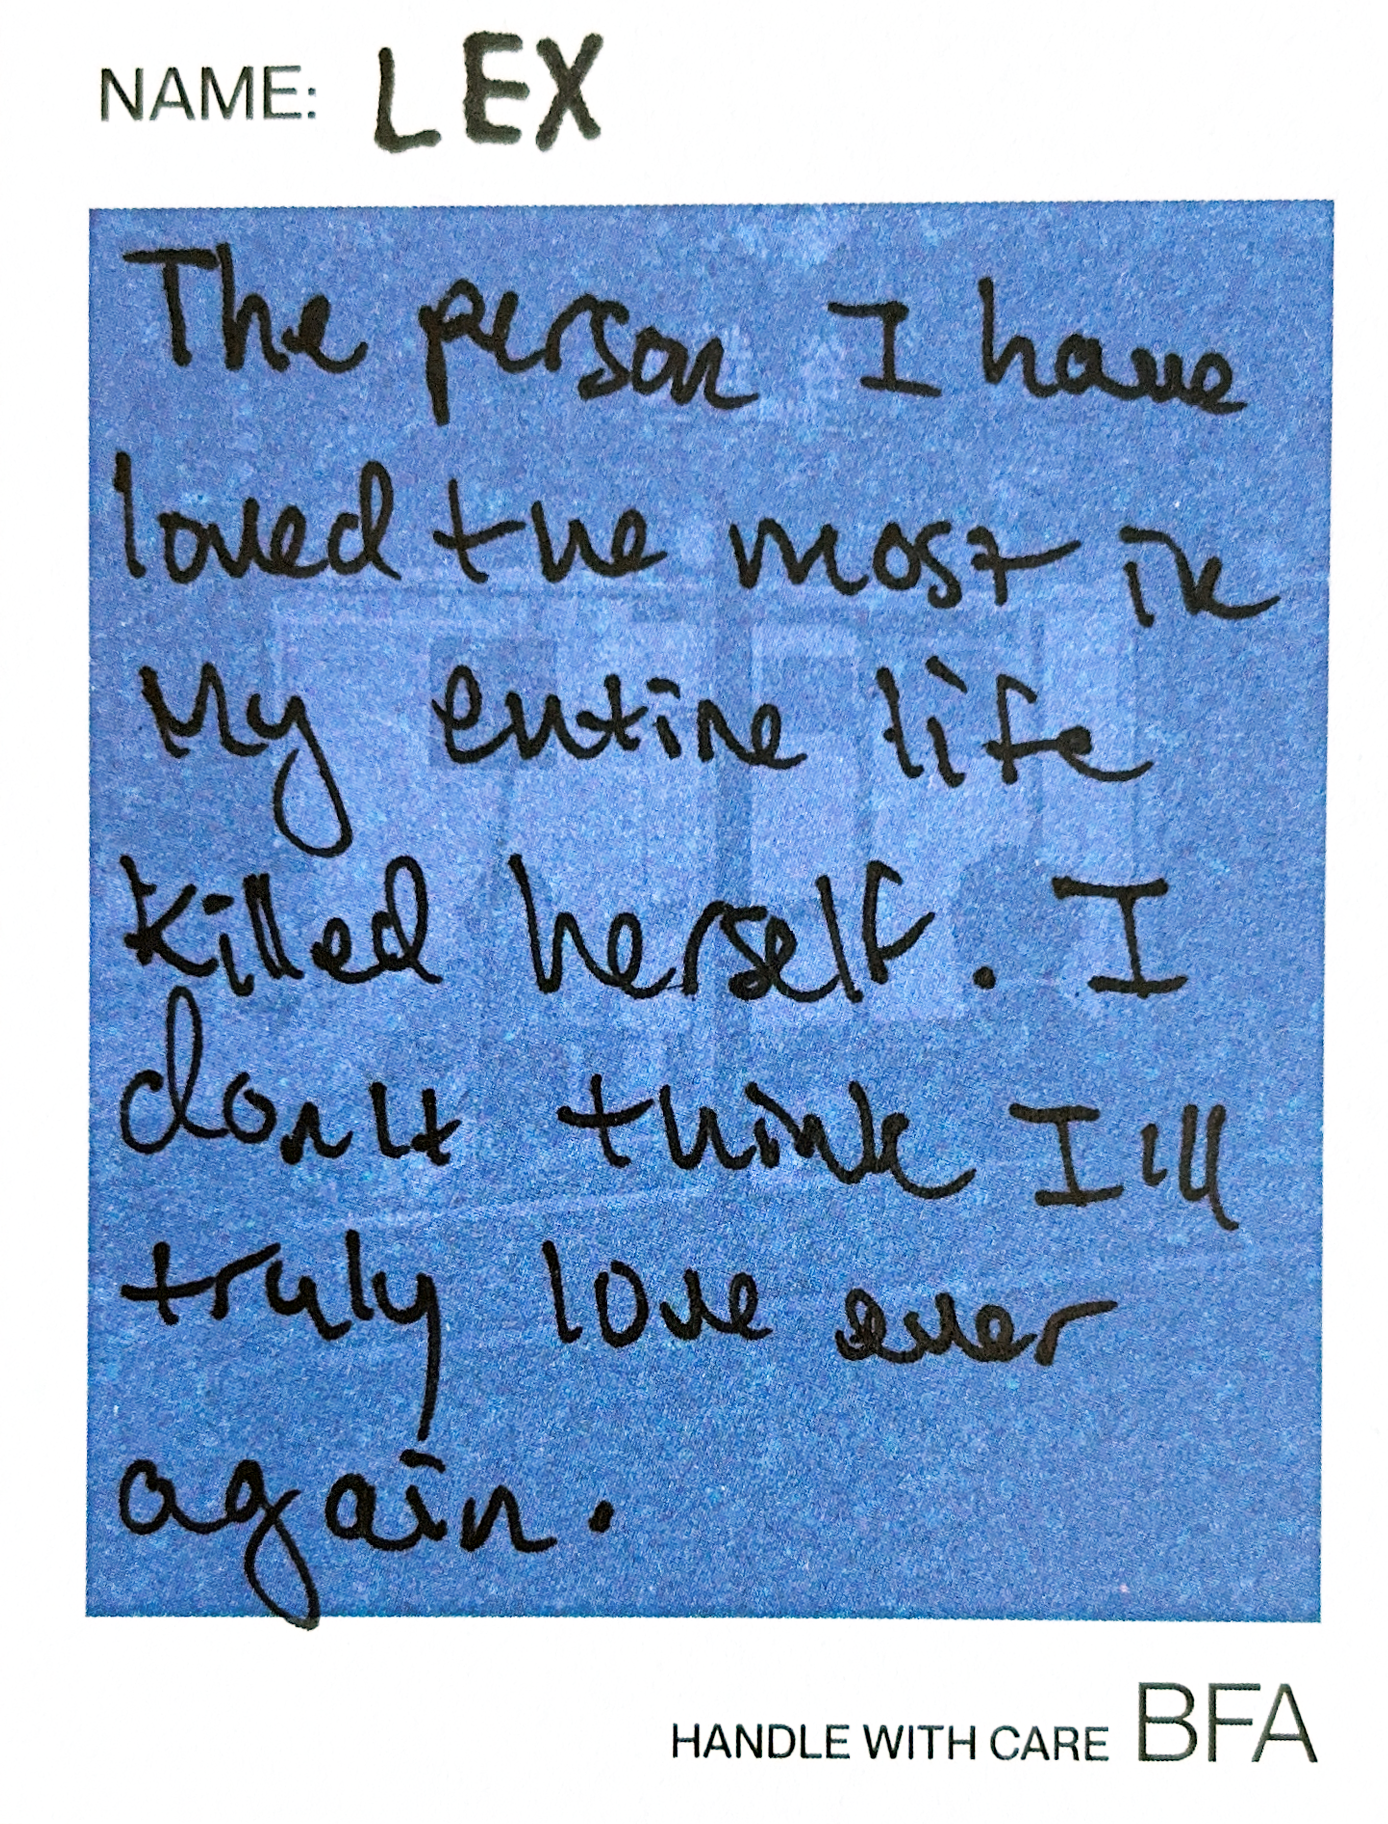 NAME: LEX
The person I have
loved the most in
my entire life
killed herself. I
don't think I'll
truly love ever
again.
HANDLE WITH CARE BFA